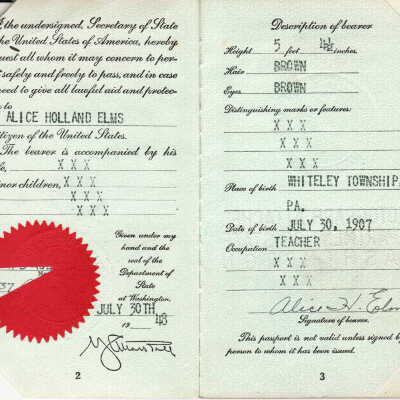 , the undersigned, Secretary of State
the United States of America, hereby
quest all whom it may concern to per-
safely and freely to pass, and in case
need to give all lawful aid and protec-
to
ALICE HOLLAND ELMS
itizen of the United States.
The bearer is accompanied by his
fe, X X X
inor children, X X X
X X X
X X X
Given under my
hand and the
seal of the
Department of
State
at Washington,
JULY 30TH
19 48
37
2
Description of bearer
Height 5 feet inches.
Hair BROWN
Eyes BROWN
Distinguishing marks or features:
X X X
X X X
X X X
Place of birth WHITELEY TOWNSHIP
PA.
Date of birth JULY 30, 1907
Occupation TEACHER
X X X
X X X
Alice H. Elms
Signature of bearer.
This passport is not valid unless signed by
person to whom it has been issued.
3